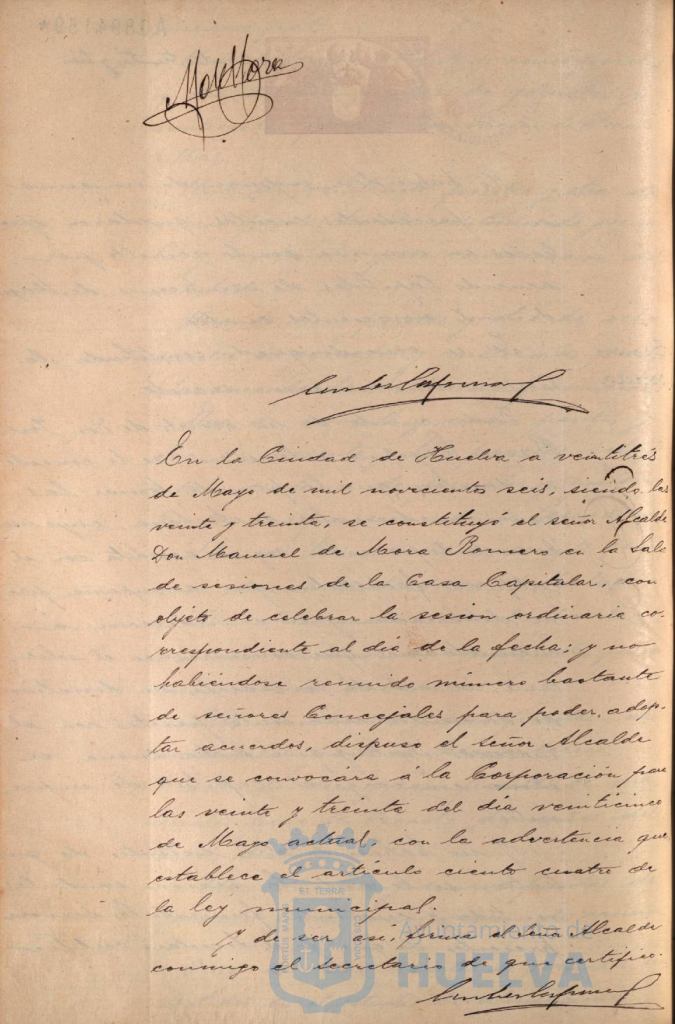 En la Ciudad de Huelva á veintitrés
de Mayo de mil novecientos seis, siendo las
veinte y treinta, se constituyó el señor Alcalde
Don Manuel de Mora Romero en la Sala
de sesiones de la Casa Capitular, con
objeto de celebrar la sesion ordinaria co-
rrespondiente al dia de la fecha; y no
habiéndose reunido número bastante
de señores Concejales para poder adop-
tar acuerdos, dispuso el señor Alcalde
que se convocára á la Corporación para
las veinte y treinta del dia veinticinco
de Mayo actual, con la advertencia que
establece el articulo ciento cuatro de
la ley municipal.
Y de ser asi, firma el Señor Alcalde
conmigo el Secretario de que certifico.
Ayuntamiento de
HUELVA